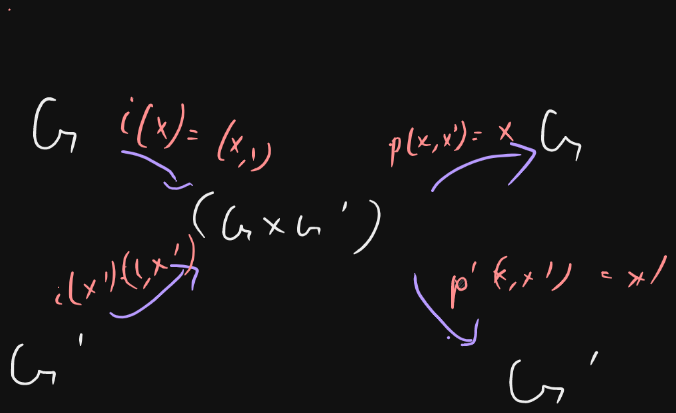 G i(x) = (x,1) p(x,x') = x G
(G x G')
i(x')(1,x') p'(x,x') = x'
G' G'